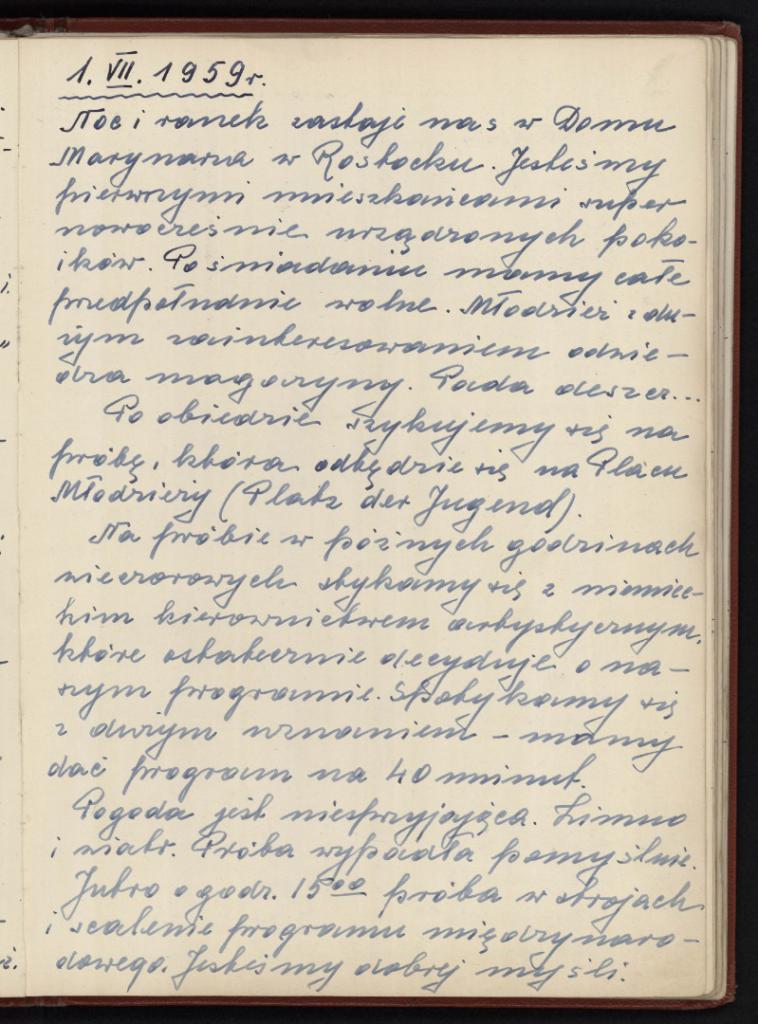 1. VII. 1959 r.
Noc i ranek zastaje nas w Domu
Marynarza w Rostocku. Jesteśmy
pierwszymi mieszkańcami super
nowocześnie urządzonych poko-
ików. Po śniadaniu mamy całe
przedpołudnie wolne. Młodzież z du-
żym zainteresowaniem odwie-
dza magazyny. Pada deszcz...
Po obiedzie szykujemy się na
próbę, która odbędzie się na Placu
Młodzieży (Platz der Jugend).
Na próbie w późnych godzinach
wieczorowych stykamy się z niemiec-
kim kierownictwem artystycznym,
które ostatecznie decyduje o na-
szym programie. Spotykamy się
z dużym uznaniem - mamy
dać program na 40 minut.
Pogoda jest niesprzyjająca. Zimno
i wiatr. Próba wypadła pomyślnie.
Jutro o godz. 15⁰⁰ próba w strojach
i scalenie programu międzynaro-
dowego. Jesteśmy dobrej myśli.